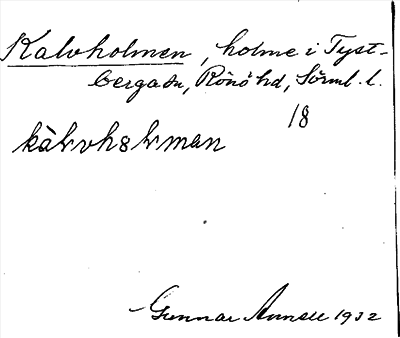 Kalvholmen, holme i Tyst-
berga sn, Rönö hd, Sörml. l.
18
kàlvhålman
Gunnar 1932